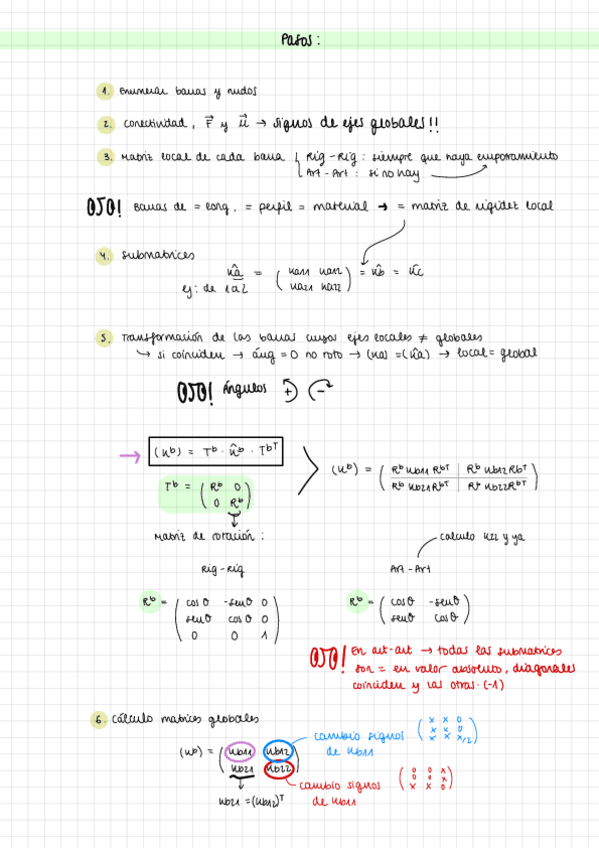 Pasos:
1. enumerar barras y nudos
2. conectividad, F⃗ y u⃗ → signos de ejes globales!!
3. Matriz local de cada barra { Rig-Rig: siempre que haya emporamiento
Art-Art: si no hay
OJO! Barras de = long, = perfil = material → = matriz de rigidez local
4. submatrices
k̂a = ( ka11 ka12 ) = k̂b = k̂c
ej: de 1 a 2 ( ka21 ka22 )
5. Transformación de las barras cuyos ejes locales ≠ globales
↳ si coinciden → áng = 0 no roto → (ka) = (k̂a) → local = global
OJO! Ángulos + -
→ (k^b) = T^b · k̂^b · T^bT
(k^b) = ( R^b kb11 R^bT | R^b kb12 R^bT )
( R^b kb21 R^bT | R^b kb22 R^bT )
T^b = ( R^b 0 )
( 0 R^b )
Matriz de rotación:
calculo k22 y ya
Rig-Rig
Art-Art
R^b = ( cosθ -senθ 0 )
( senθ cosθ 0 )
( 0 0 1 )
R^b = ( cosθ -senθ )
( senθ cosθ )
OJO! En art-art → todas las submatrices
son = en valor absoluto, diagonales
coinciden y las otras · (-1)
6. Cálculo matrices globales
(k^b) = ( kb11 kb12 )
( kb21 kb22 )
kb21 = (kb12)^T
cambio signos
de kb11
( x x 0 )
( x x 0 )
( x x x/2 )
cambio signos
de kb11
( 0 0 x )
( 0 0 x )
( x x 0 )